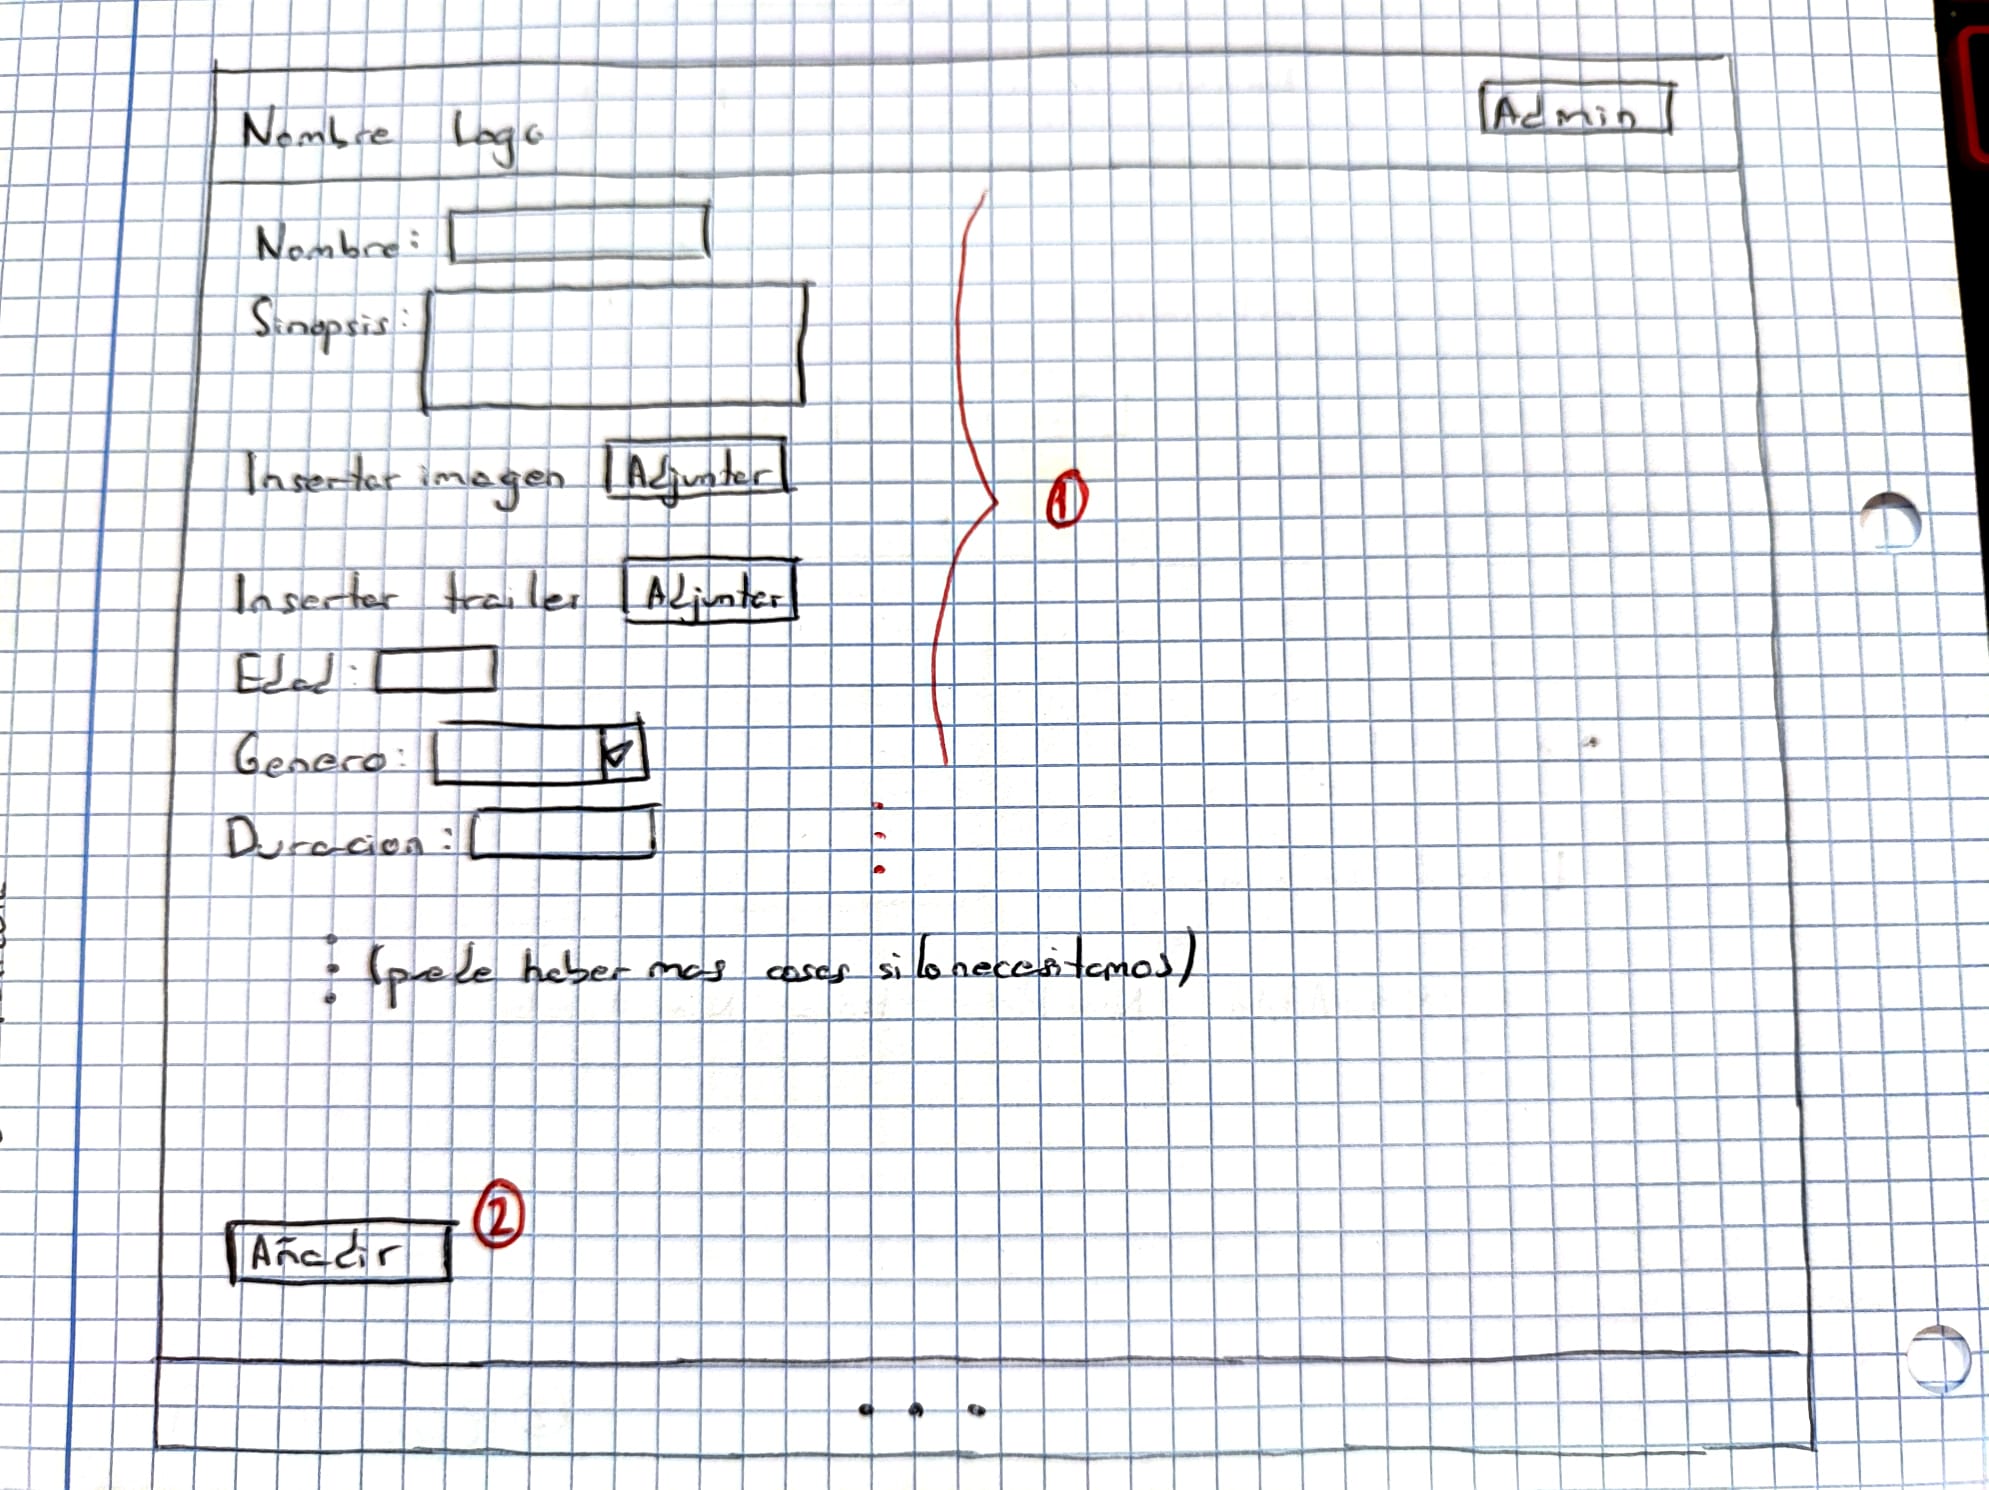 Nombre Logo
Admin
Nombre:
Sinopsis:
Insertar imagen Adjuntar
1
Insertar trailer Adjuntar
Edad:
Genero:
Duracion:
(puede haber mas cosas si lo necesitamos)
2
Añadir